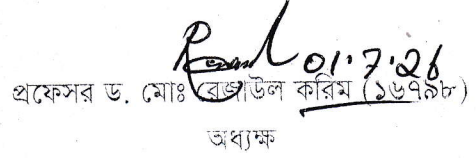 01.7.26
প্রফেসর ড. মোঃ রেজাউল করিম (১৬৭৯৮)
অধ্যক্ষ